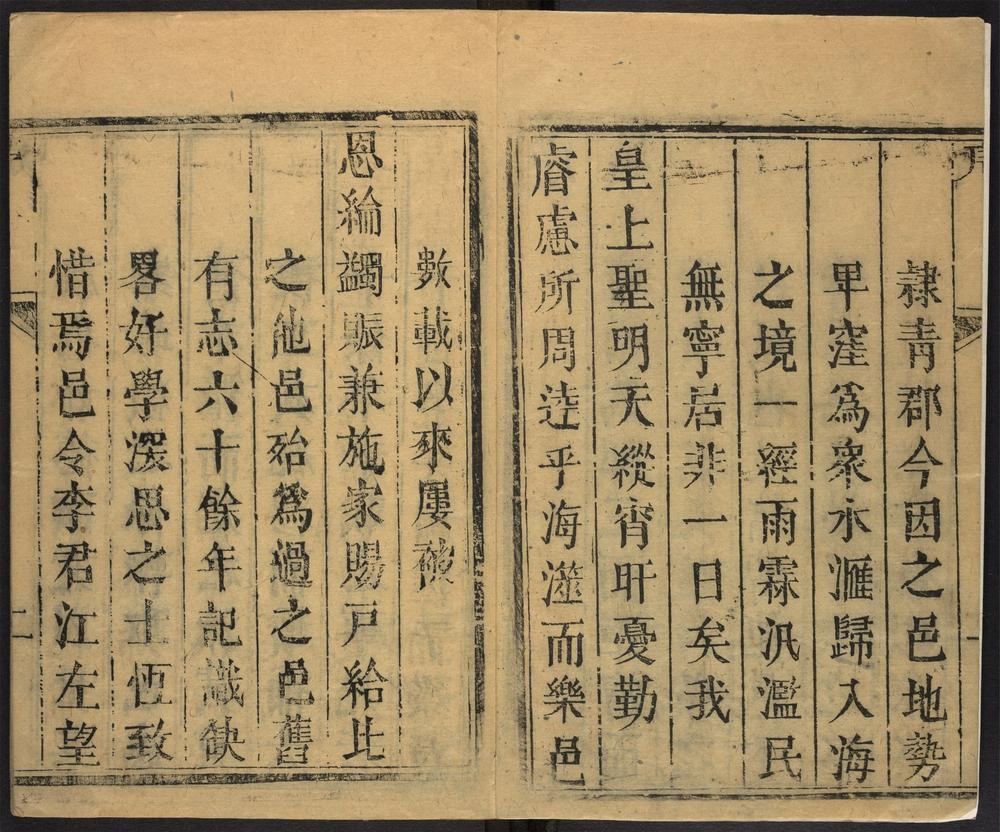 隸青郡今因之邑地勢
卑窪爲衆水滙歸入海
之境一經雨霖汎濫民
無寧居非一日矣我
皇上聖明天縱宵旰憂勤
睿慮所周逵乎海澨而樂邑
數載以來屢被
恩綸蠲賑兼施家賜戸給比
之他邑殆爲過之邑舊
有志六十餘年記識缺
畧好學深思之士恆致
惜焉邑令李君江左望
序
一
二